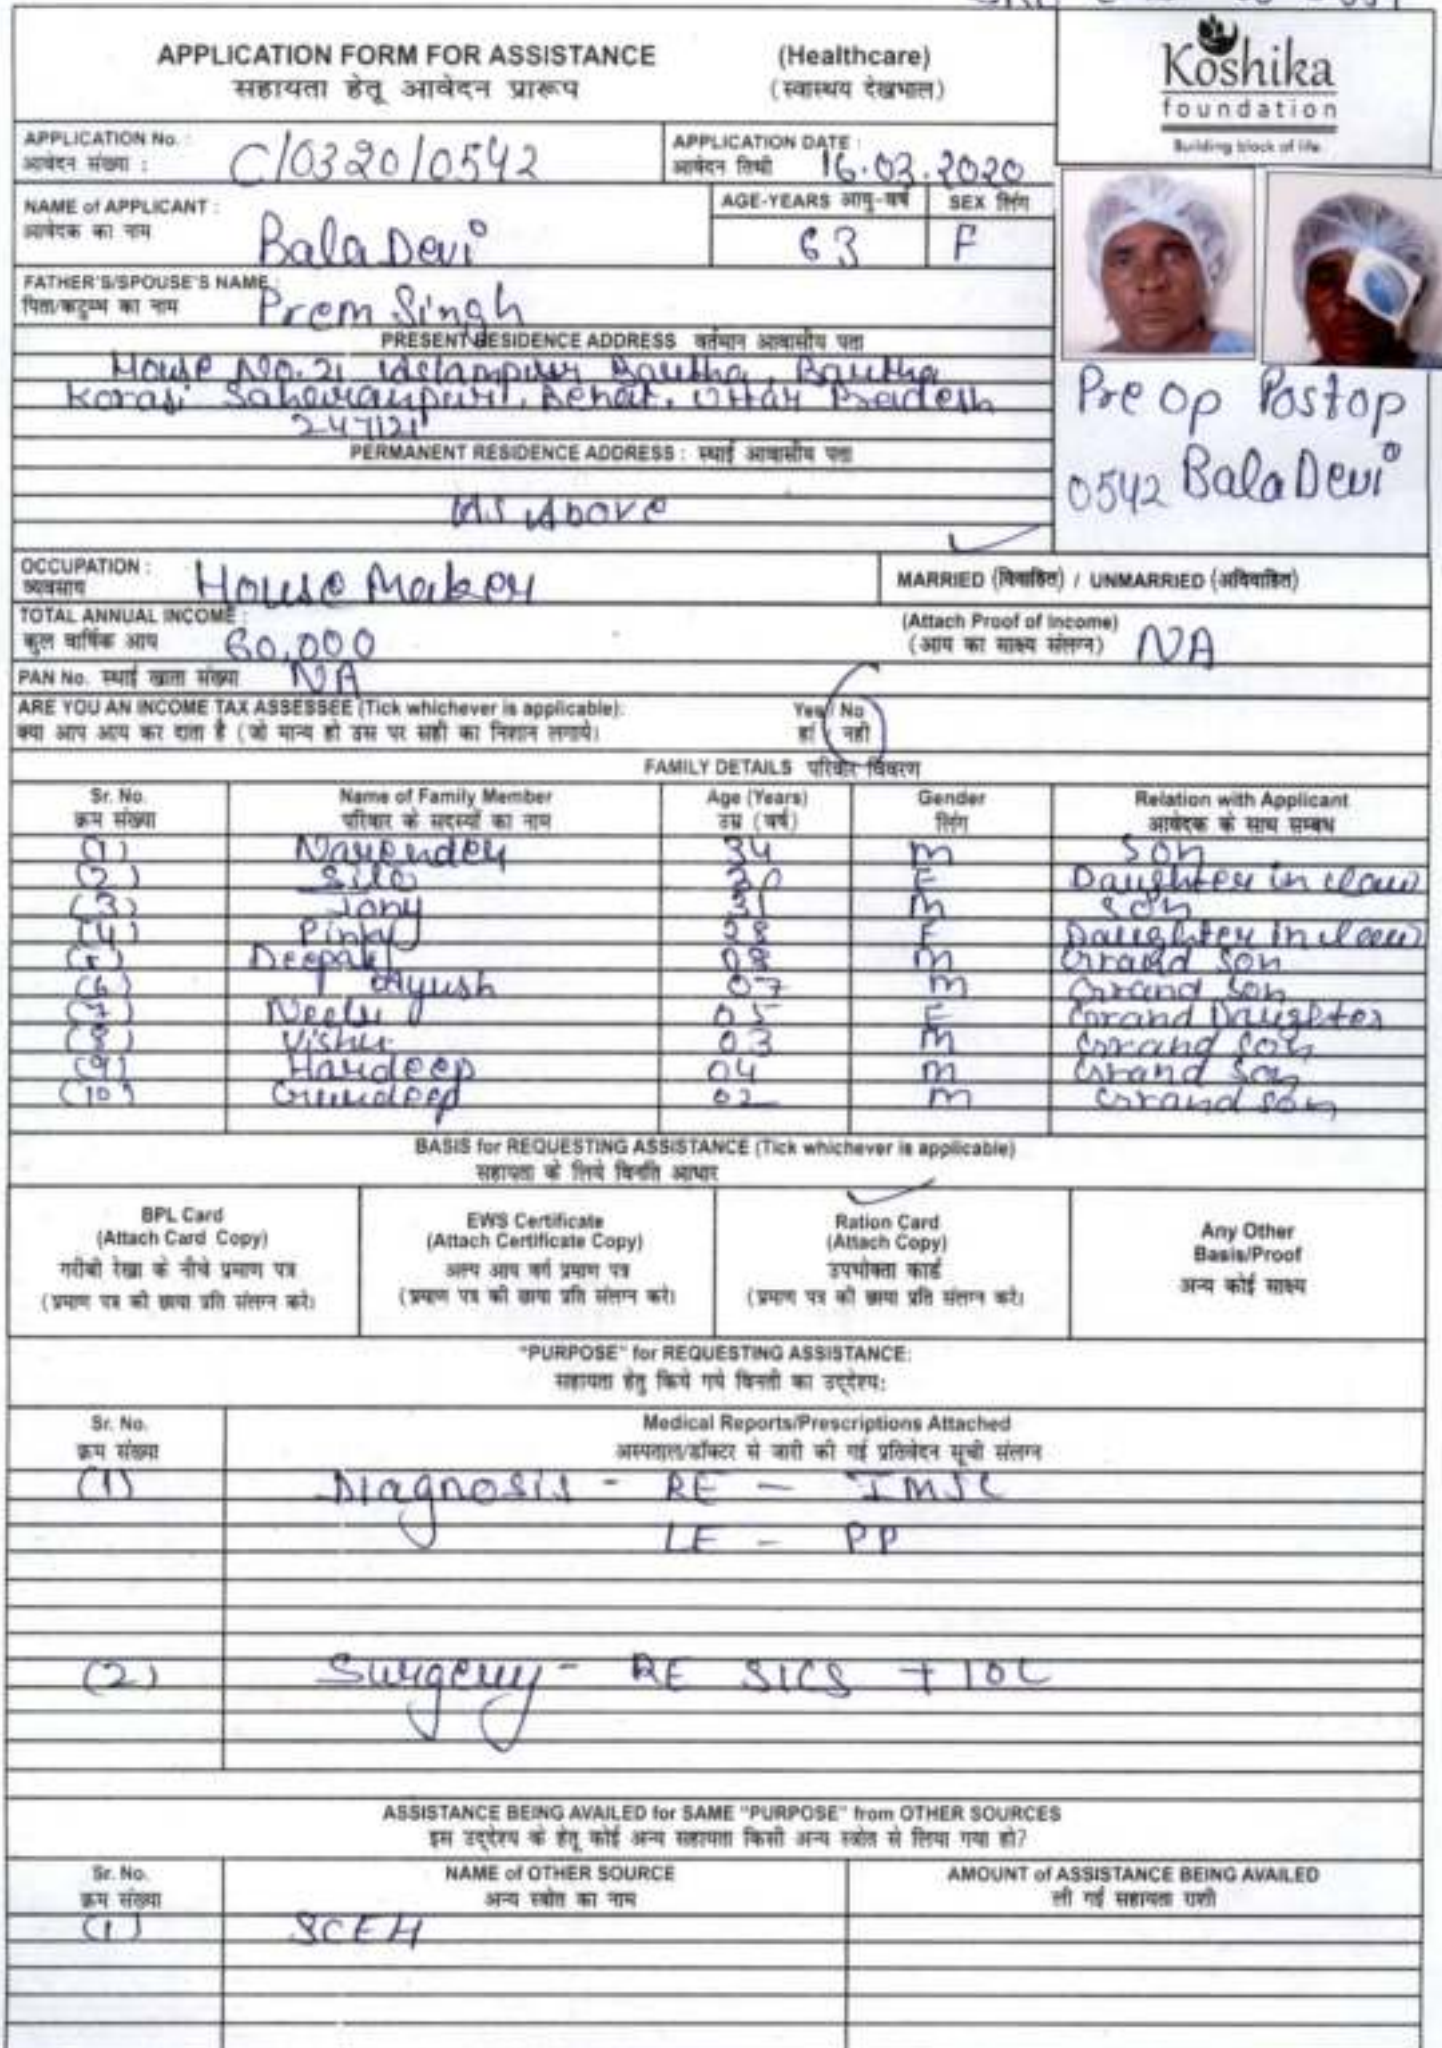 APPLICATION FORM FOR ASSISTANCE (Healthcare)
सहायता हेतू आवेदन प्रारूप (स्वास्थय देखभाल)
Koshika
foundation
Building block of life
APPLICATION No. :
आवेदन संख्या :
C/0320/0542
APPLICATION DATE :
आवेदन तिथी
16.03.2020
NAME of APPLICANT :
आवेदक का नाम
Bala Devi
AGE-YEARS आयु-वर्ष
63
SEX लिंग
F
FATHER'S/SPOUSE'S NAME :
पिता/कटुम्भ का नाम
Prem Singh
PRESENT RESIDENCE ADDRESS वर्तमान आवासीय पता
House No. 21 Islampur Bautha, Bautha
Korasi Saharanpur, Behat, Uttar Pradesh
247121
PERMANENT RESIDENCE ADDRESS : स्थाई आवासीय पता
As Above
Pre op Postop
0542 Bala Devi
OCCUPATION :
व्यवसाय
House Maker
MARRIED (विवाहित) / UNMARRIED (अविवाहित)
TOTAL ANNUAL INCOME :
कुल वार्षिक आय
60,000
(Attach Proof of Income)
(आय का साक्ष्य संलग्न)
NA
PAN No. स्थाई खाता संख्या NA
ARE YOU AN INCOME TAX ASSESSEE (Tick whichever is applicable): Yes / No
क्या आप आय कर दाता है (जो मान्य हो उस पर सही का निशान लगाये। हां / नही
FAMILY DETAILS परिवार विवरण
Sr. No. Name of Family Member Age (Years) Gender Relation with Applicant
क्रम संख्या परिवार के सदस्यों का नाम उम्र (वर्ष) लिंग आवेदक के साथ सम्बध
(1) Narender 34 M Son
(2) F Daughter in law
(3) Tony 31 M Son
(4) Pinky 28 F Daughter in law
(5) Deepak 08 M Grand Son
(6) Ayush 07 M Grand Son
(7) Neelu 05 F Grand Daughter
(8) Vishu 03 M Grand Son
(9) Hardeep 04 M Grand Son
(10) Gurudeep 02 M Grand son
BASIS for REQUESTING ASSISTANCE (Tick whichever is applicable)
सहायता के लिये विनति आधार
BPL Card
(Attach Card Copy)
गरीबी रेखा के नीचे प्रमाण पत्र
(प्रमाण पत्र की छाया प्रति संलग्न करे।
EWS Certificate
(Attach Certificate Copy)
अल्प आय वर्ग प्रमाण पत्र
(प्रमाण पत्र की छाया प्रति संलग्न करे।
Ration Card
(Attach Copy)
उपभोक्ता कार्ड
(प्रमाण पत्र की छाया प्रति संलग्न करे।
Any Other
Basis/Proof
अन्य कोई साक्ष्य
"PURPOSE" for REQUESTING ASSISTANCE:
सहायता हेतु किये गये विनती का उद्देश्य:
Sr. No. Medical Reports/Prescriptions Attached
क्रम संख्या अस्पताल/डॉक्टर से जारी की गई प्रतिवेदन सूची संलग्न
(1) Diagnosis - RE - IMSC
LE - PP
(2) Surgery - RE SICS + IOL
ASSISTANCE BEING AVAILED for SAME "PURPOSE" from OTHER SOURCES
इस उद्देश्य के हेतू कोई अन्य सहायता किसी अन्य स्त्रोत से लिया गया हो?
Sr. No. NAME of OTHER SOURCE AMOUNT of ASSISTANCE BEING AVAILED
क्रम संख्या अन्य स्त्रोत का नाम ली गई सहायता राशी
(1) SCEH